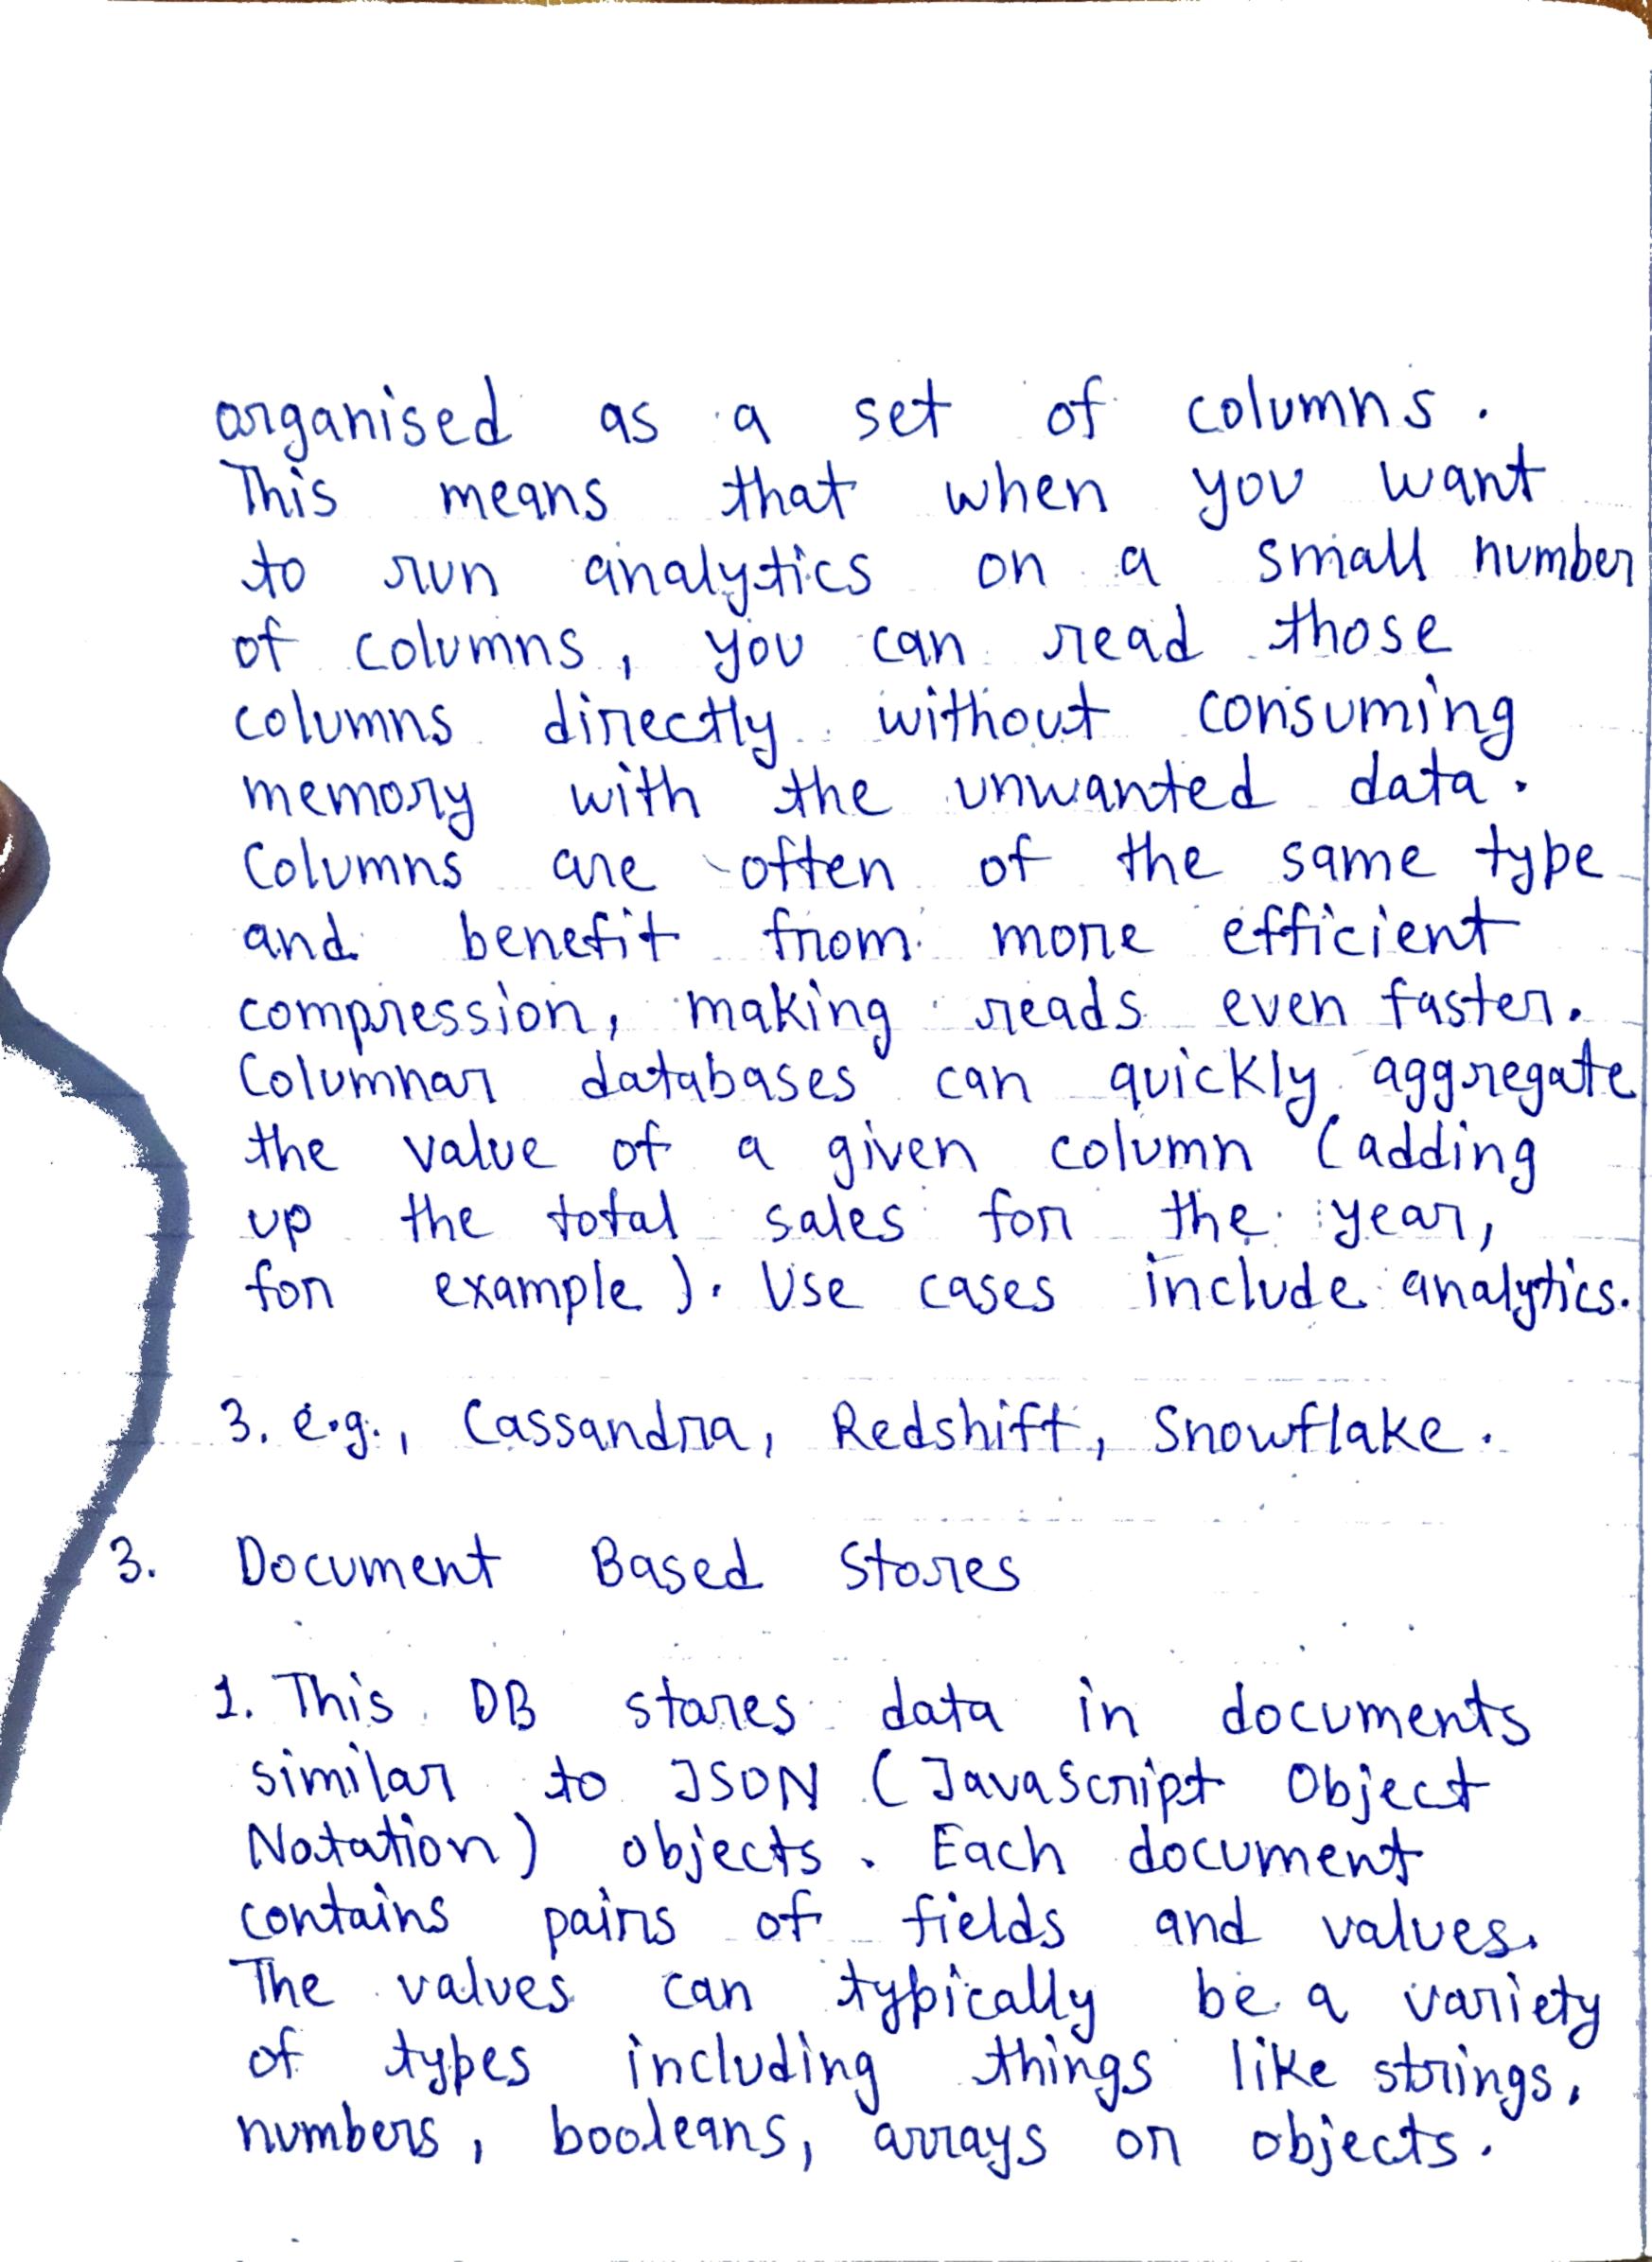 organised as a set of columns.
This means that when you want
to run analytics on a small number
of columns, you can read those
columns directly without consuming
memory with the unwanted data.
Columns are often of the same type
and benefit from more efficient
compression, making reads even faster.
Columnar databases can quickly aggregate
the value of a given column (adding
up the total sales for the year,
for example). Use cases include analytics.
3. e.g., Cassandra, Redshift, Snowflake.
3. Document Based Stores
1. This DB stores data in documents
similar to JSON (JavaScript Object
Notation) objects. Each document
contains pairs of fields and values.
The values can typically be a variety
of types including things like strings,
numbers, booleans, arrays or objects.